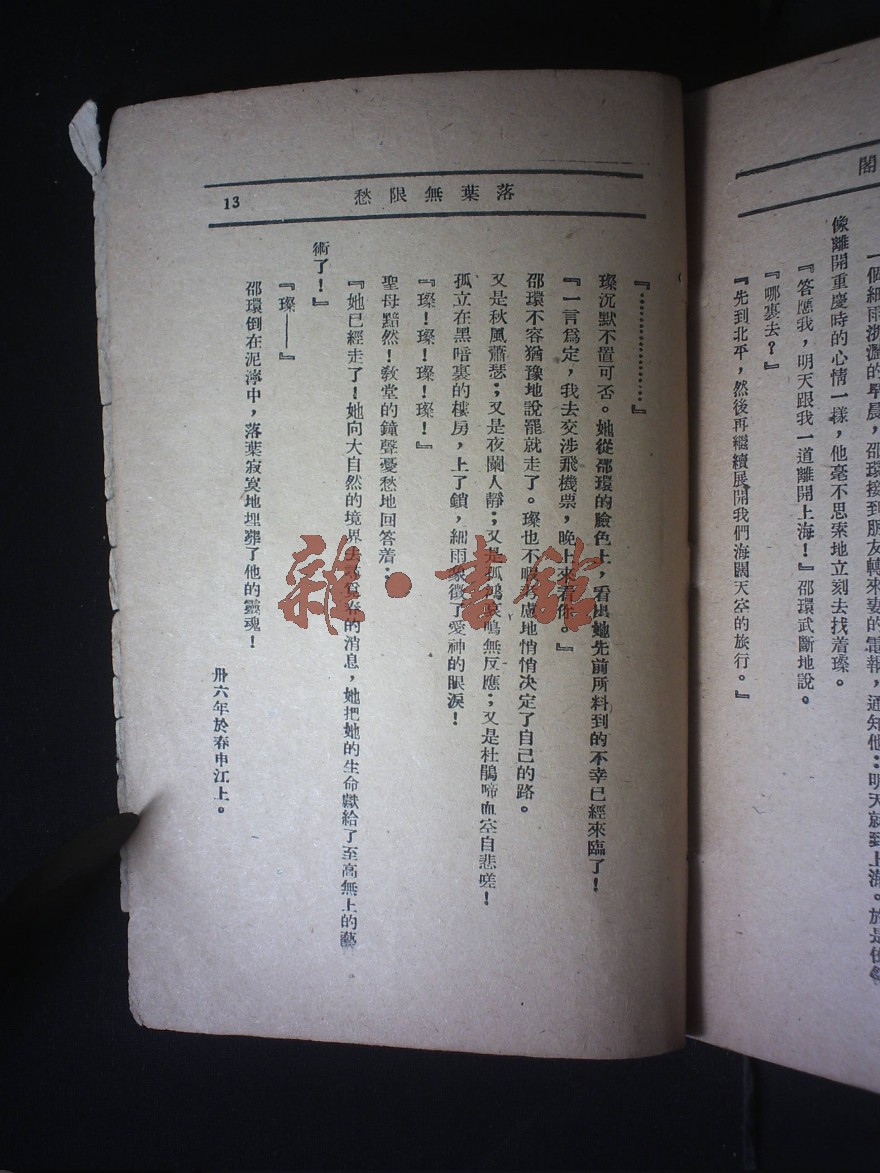 閣
一個細雨淅瀝的早晨，邵環接到朋友轉來妻的電報，通知他：明天就到上海。於是
像離開重慶時的心情一樣，他毫不思索地立刻去找着璨。
『答應我，明天跟我一道離開上海！』邵環武斷地說。
『哪裏去？』
『先到北平，然後再繼續展開我們海闊天空的旅行。』
落葉無限愁
13
『…………………』
璨沉默不置可否。她從邵環的臉色上，看出她先前所料到的不幸已經來臨了！
『一言爲定，我去交涉飛機票，晚上來看你。』
邵環不容猶豫地說罷就走了。璨也不暇考慮地悄悄决定了自己的路。
又是秋風蕭瑟；又是夜闌人靜；又是孤鴻哀鳴無反應；又是杜鵑啼血空自悲嗟！
孤立在黑暗裏的樓房，上了鎖，細雨象徵了愛神的眼淚！
『璨！璨！璨！璨！』
聖母黯然！敎堂的鐘聲憂愁地回答着：
『她已經走了！她向大自然的境界去尋覓春的消息，她把她的生命獻給了至高無上的藝
術了！』
『璨——』
邵環倒在泥濘中，落葉寂寞地埋葬了他的靈魂！
卅六年於春申江上。
雜·書館